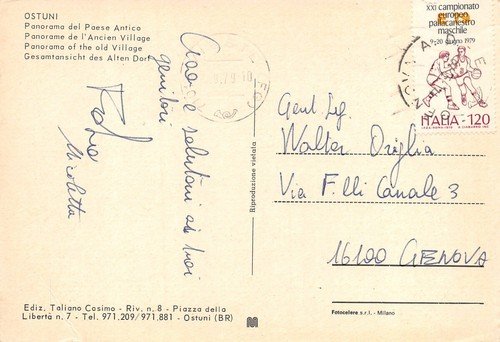 OSTUNI
Panorama del Paese Antico
Panorama de l'Ancien Village
Panorama of the old Village
Gesamtansicht des Alten Dorf
Ciao e salutoni ai tuoi
genitori
Nicoletta
Riproduzione vietata
XXI campionato
europeo
pallacanestro
maschile
9-20 giugno 1979
ITALIA 120
Gent. Sig.
Walter Origlia
Via F.lli Canale 3
16100 GENOVA
Ediz. Taliano Cosimo - Riv. n. 8 - Piazza della
Libertà n. 7 - Tel. 971.209/971.881 - Ostuni (BR)
Fotocelere s.r.l. - Milano